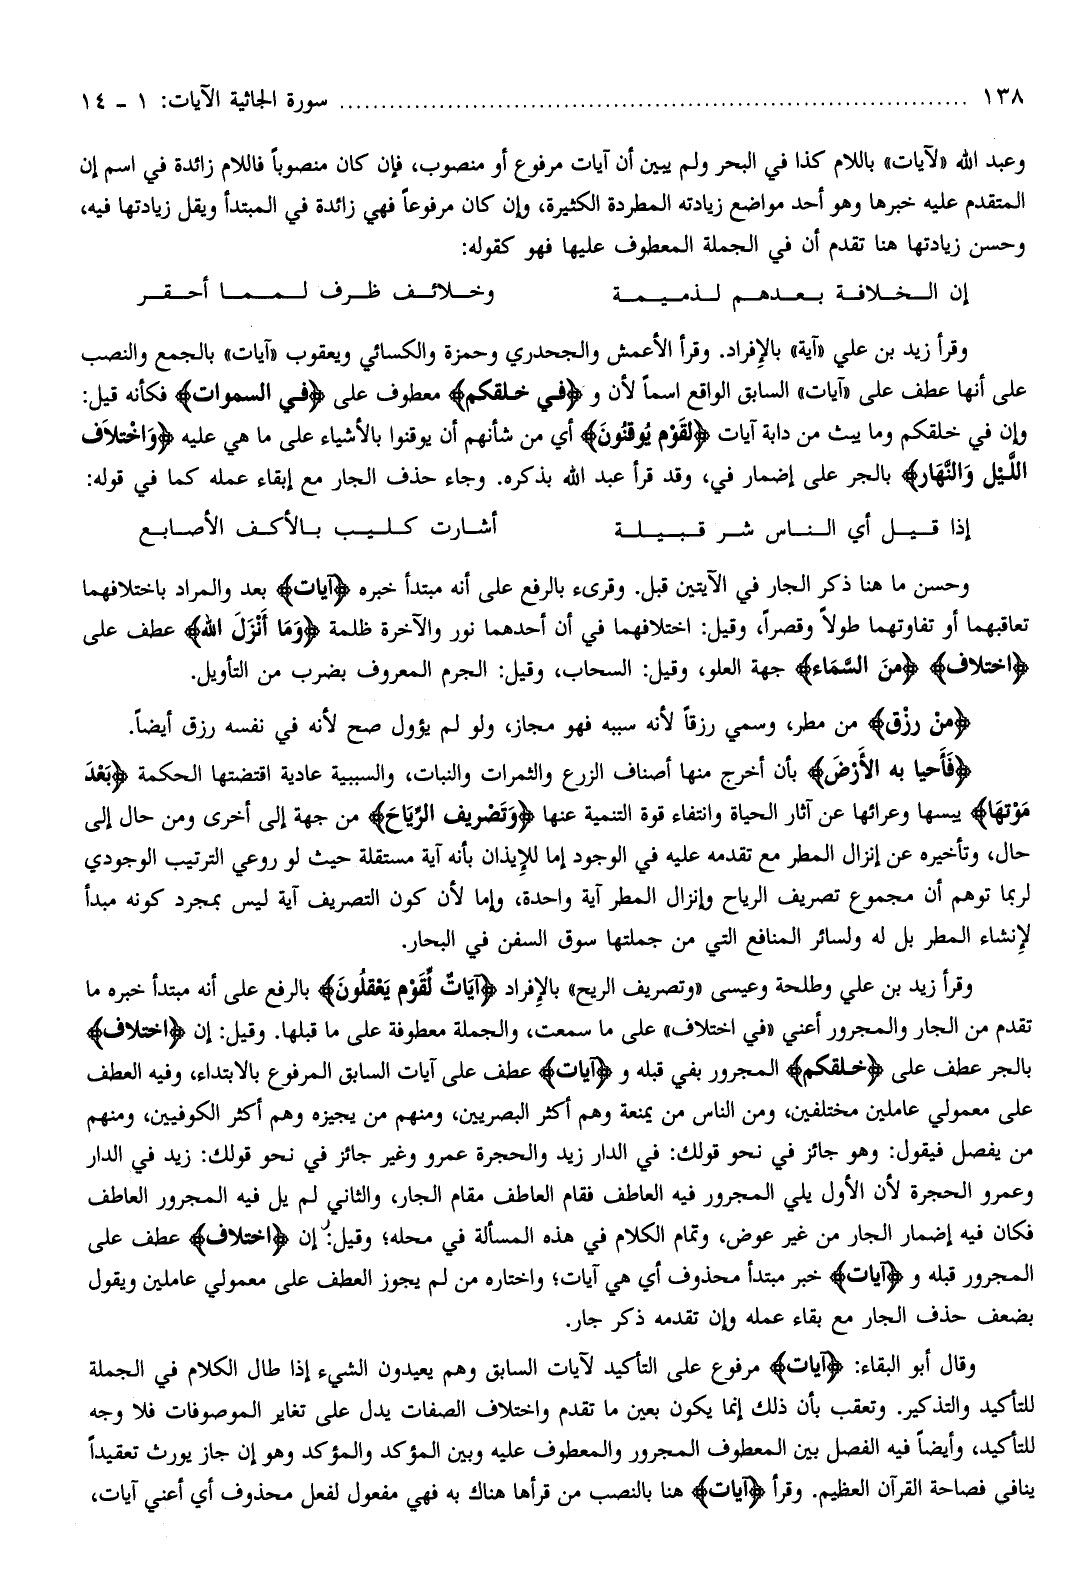 ١٣٨ ........................................................................ سورة الجاثية الآيات: ١ - ١٤
وعبد الله «لآيات» باللام كذا في البحر ولم يبين أن آيات مرفوع أو منصوب، فإن كان منصوباً فاللام زائدة في اسم إن
المتقدم عليه خبرها وهو أحد مواضع زيادته المطردة الكثيرة، وإن كان مرفوعاً فهي زائدة في المبتدأ ويقل زيادتها فيه،
وحسن زيادتها هنا تقدم أن في الجملة المعطوف عليها فهو كقوله:
إن الـخـلافـة بـعـدهـم لـذمـيـمـة وخـلائـف ظـرف لـمـمـا أحـقـر
وقرأ زيد بن علي «آية» بالإفراد. وقرأ الأعمش والجحدري وحمزة والكسائي ويعقوب «آيات» بالجمع والنصب
على أنها عطف على «آيات» السابق الواقع اسماً لأن و ﴿في خلقكم﴾ معطوف على ﴿في السموات﴾ فكأنه قيل:
وإن في خلقكم وما يبث من دابة آيات ﴿لقَوْم يُوقنُونَ﴾ أي من شأنهم أن يوقنوا بالأشياء على ما هي عليه ﴿وَاخْتلَاف
اللَّيْل وَالنَّهَار﴾ بالجر على إضمار في، وقد قرأ عبد الله بذكره. وجاء حذف الجار مع إبقاء عمله كما في قوله:
إذا قـيـل أي الـنـاس شـر قـبـيـلـة أشارت كـلـيـب بـالأكـف الأصـابـع
وحسن ما هنا ذكر الجار في الآيتين قبل. وقرىء بالرفع على أنه مبتدأ خبره ﴿آيات﴾ بعد والمراد باختلافهما
تعاقبهما أو تفاوتهما طولاً وقصراً، وقيل: اختلافهما في أن أحدهما نور والآخرة ظلمة ﴿وَمَا أَنْزَلَ الله﴾ عطف على
﴿اختلاف﴾ ﴿منَ السَّمَاء﴾ جهة العلو، وقيل: السحاب، وقيل: الجرم المعروف بضرب من التأويل.
﴿منْ رزْق﴾ من مطر، وسمي رزقاً لأنه سببه فهو مجاز، ولو لم يؤول صح لأنه في نفسه رزق أيضاً.
﴿فَأَحيا به الأَرْضَ﴾ بأن أخرج منها أصناف الزرع والثمرات والنبات، والسببية عادية اقتضتها الحكمة ﴿بَعْدَ
مَوْتهَا﴾ يبسها وعرائها عن آثار الحياة وانتفاء قوة التنمية عنها ﴿وَتَصْريف الرِّيَاحَ﴾ من جهة إلى أخرى ومن حال إلى
حال، وتأخيره عن إنزال المطر مع تقدمه عليه في الوجود إما للإيذان بأنه آية مستقلة حيث لو روعي الترتيب الوجودي
لربما توهم أن مجموع تصريف الرياح وإنزال المطر آية واحدة، وإما لأن كون التصريف آية ليس بمجرد كونه مبدأ
لإنشاء المطر بل له ولسائر المنافع التي من جملتها سوق السفن في البحار.
وقرأ زيد بن علي وطلحة وعيسى «وتصريف الريح» بالإفراد ﴿آيَاتٌ لِّقَوْم يَعْقلُونَ﴾ بالرفع على أنه مبتدأ خبره ما
تقدم من الجار والمجرور أعني «في اختلاف» على ما سمعت، والجملة معطوفة على ما قبلها. وقيل: إن ﴿اختلاف﴾
بالجر عطف على ﴿خلقكم﴾ المجرور بفي قبله و ﴿آيات﴾ عطف على آيات السابق المرفوع بالابتداء، وفيه العطف
على معمولي عاملين مختلفين، ومن الناس من يمنعة وهم أكثر البصريين، ومنهم من يجيزه وهم أكثر الكوفيين، ومنهم
من يفصل فيقول: وهو جائز في نحو قولك: في الدار زيد والحجرة عمرو وغير جائز في نحو قولك: زيد في الدار
وعمرو الحجرة لأن الأول يلي المجرور فيه العاطف فقام العاطف مقام الجار، والثاني لم يل فيه المجرور العاطف
فكان فيه إضمار الجار من غير عوض، وتمام الكلام في هذه المسألة في محله؛ وقيل: إن ﴿اختلاف﴾ عطف على
المجرور قبله و ﴿آيات﴾ خبر مبتدأ محذوف أي هي آيات؛ واختاره من لم يجوز العطف على معمولي عاملين ويقول
بضعف حذف الجار مع بقاء عمله وإن تقدمه ذكر جار.
وقال أبو البقاء: ﴿آيات﴾ مرفوع على التأكيد لآيات السابق وهم يعيدون الشيء إذا طال الكلام في الجملة
للتأكيد والتذكير. وتعقب بأن ذلك إنما يكون بعين ما تقدم واختلاف الصفات يدل على تغاير الموصوفات فلا وجه
للتأكيد، وأيضاً فيه الفصل بين المعطوف المجرور والمعطوف عليه وبين المؤكد والمؤكد وهو إن جاز يورث تعقيداً
ينافي فصاحة القرآن العظيم. وقرأ ﴿آيات﴾ هنا بالنصب من قرأها هناك به فهي مفعول لفعل محذوف أي أعني آيات،